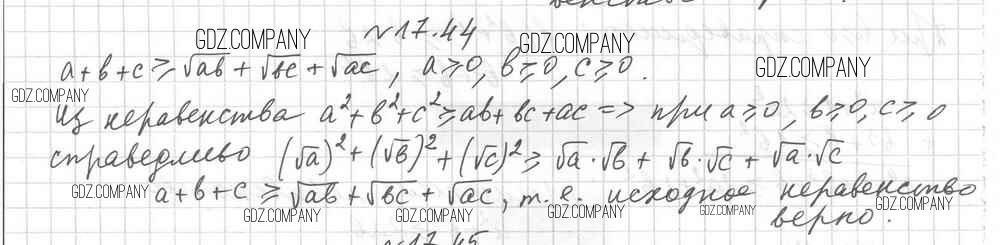 №17.44
a+b+c ≥ √ab + √bc + √ac, a≥0, b≥0, c≥0.
Из неравенства a²+b²+c² ≥ ab+bc+ac => при a≥0, b≥0, c≥0
справедливо (√a)²+(√b)²+(√c)² ≥ √a·√b + √b·√c + √a·√c
a+b+c ≥ √ab + √bc + √ac, т.е. исходное неравенство
верно.
№17.45
GDZ.COMPANY
GDZ.COMPANY
GDZ.COMPANY
GDZ.COMPANY
GDZ.COMPANY
GDZ.COMPANY
GDZ.COMPANY
GDZ.COMPANY
GDZ.COMPANY
GDZ.COMPANY